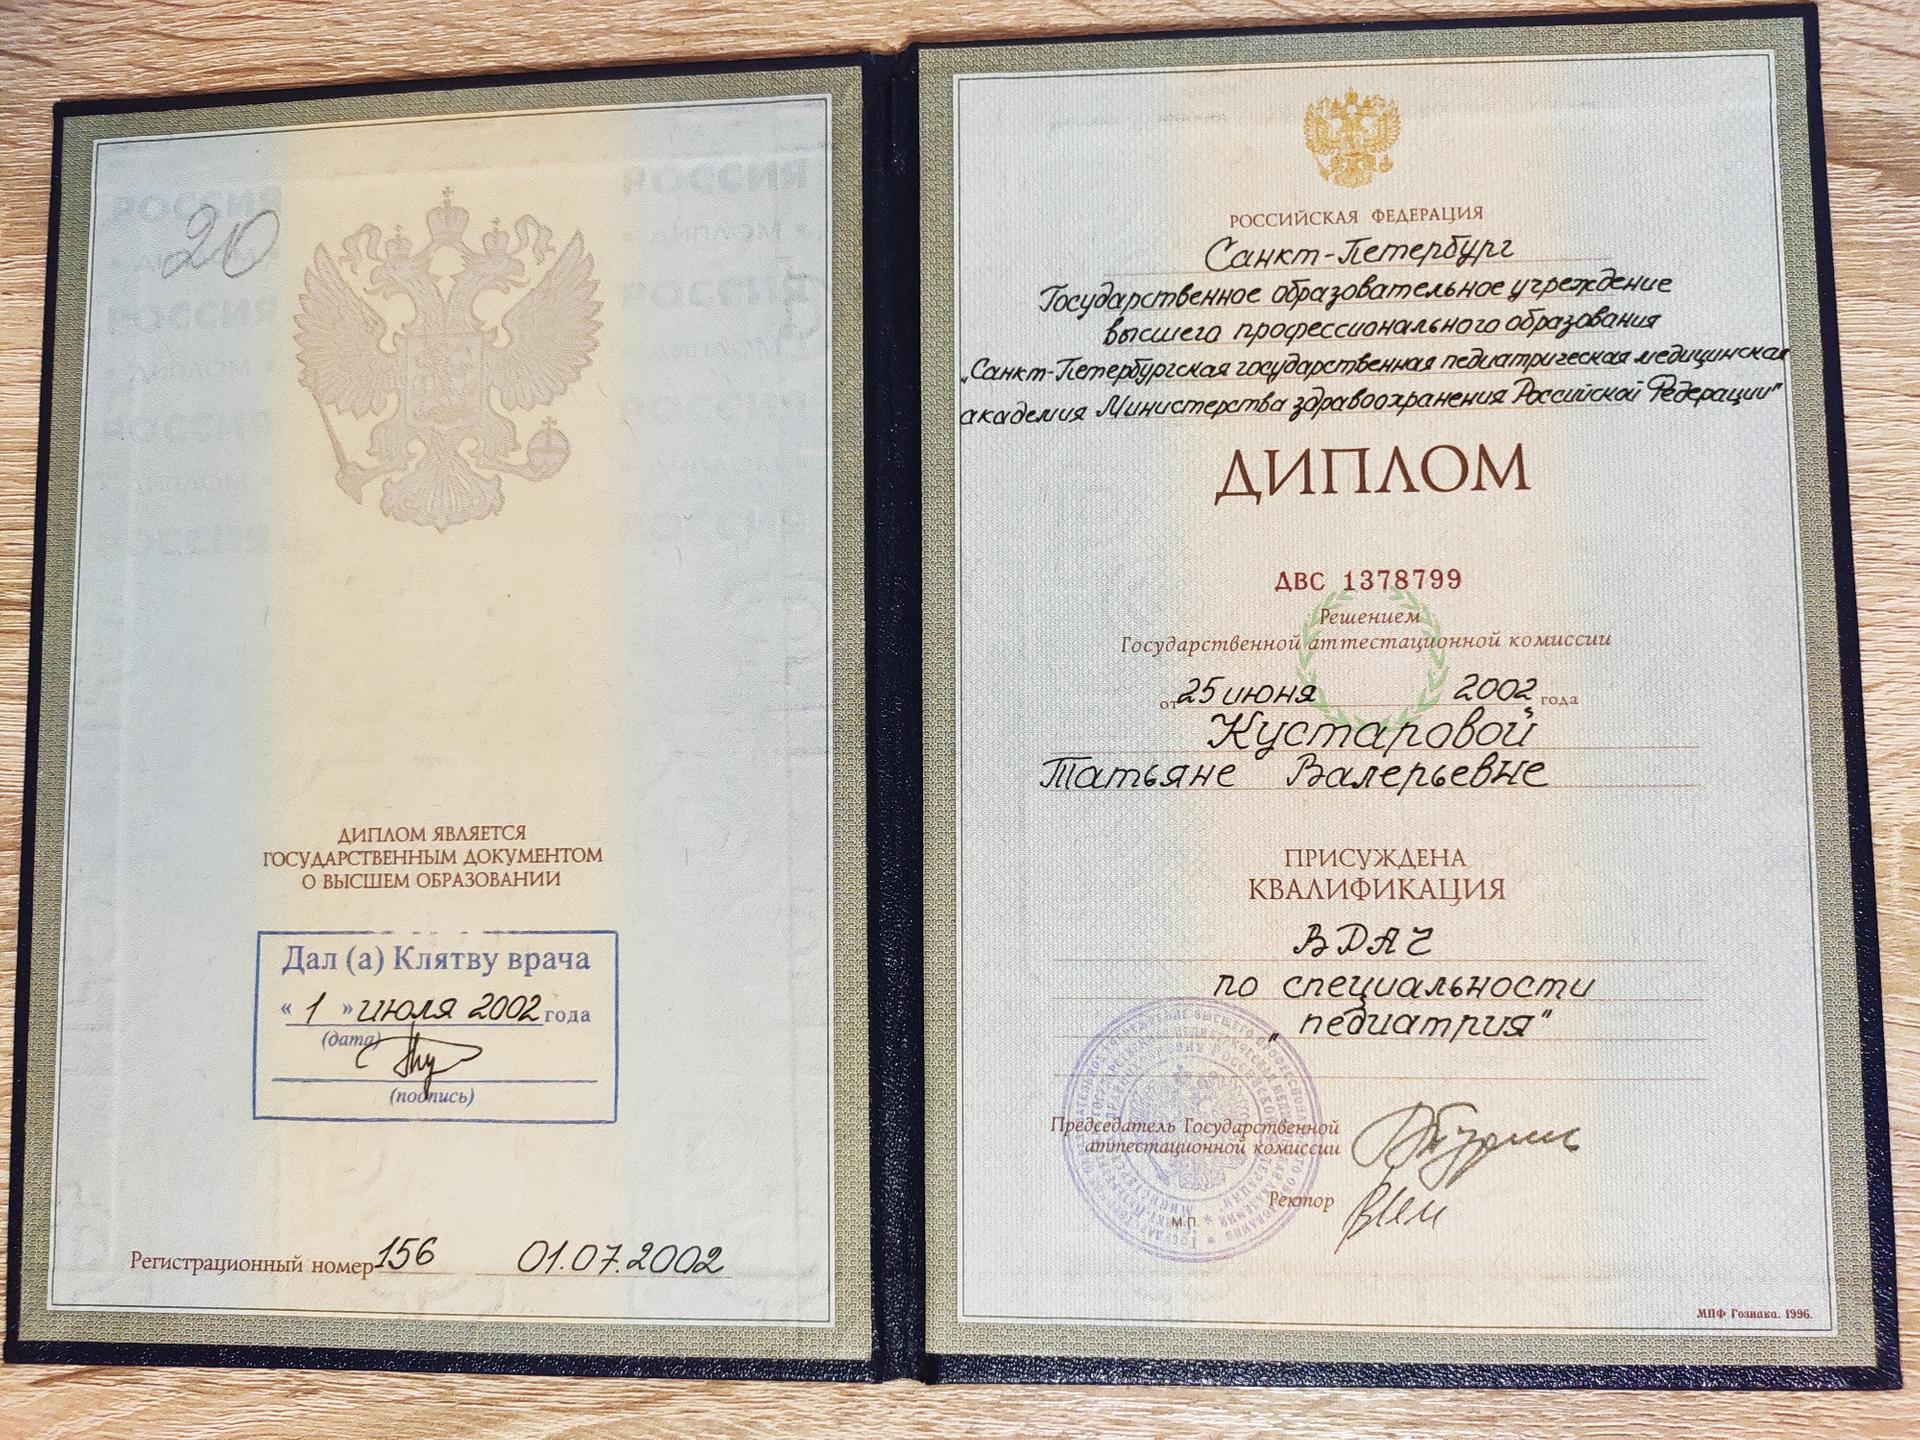 20
ДИПЛОМ ЯВЛЯЕТСЯ
ГОСУДАРСТВЕННЫМ ДОКУМЕНТОМ
О ВЫСШЕМ ОБРАЗОВАНИИ
Дал (а) Клятву врача
« 1 » июля 2002 года
(дата)
(подпись)
Регистрационный номер 156 01.07.2002
РОССИЙСКАЯ ФЕДЕРАЦИЯ
Санкт-Петербург
Государственное образовательное учреждение
высшего профессионального образования
„Санкт-Петербургская государственная педиатрическая медицинская
академия Министерства здравоохранения Российской Федерации"
ДИПЛОМ
ДВС 1378799
Решением
Государственной аттестационной комиссии
от 25 июня 2002 года
Кустаровой
Татьяне Валерьевне
ПРИСУЖДЕНА
КВАЛИФИКАЦИЯ
ВРАЧ
по специальности
„педиатрия"
Председатель Государственной
аттестационной комиссии
Ректор
М.П.
МПФ Гознака. 1996.